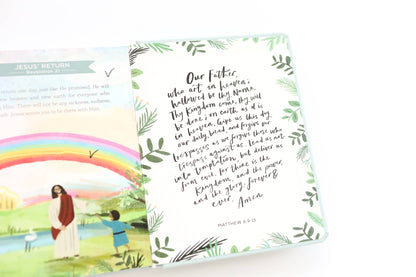 JESUS' RETURN
Revelation 21
return one day just like He promised. He will
new heaven and new earth for everyone who
Him. There will not be any sickness, sadness,
death. Jesus wants you to be there with Him.
Our Father,
who art in heaven;
hallowed be thy Name.
Thy Kingdom come, thy will
be done; on earth as it is
in heaven. Give us this day
our daily bread, and forgive our
trespasses as we forgive those who
trespass against us. Lead us not
into temptation, but deliver us
from evil. For thine is the
Kingdom, and the power,
and the glory, forever &
ever. Amen
MATTHEW 6:9-13